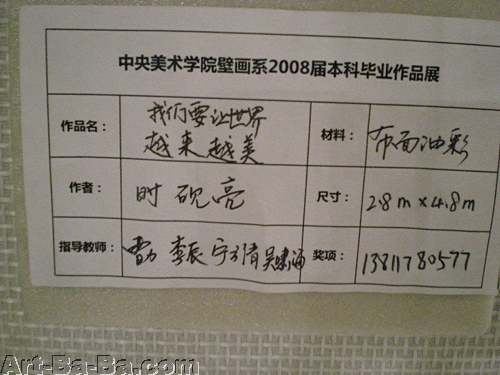 中央美术学院壁画系2008届本科毕业作品展
作品名：
我们要让世界
越来越美
材料：
布面油彩
作者：
时砚亮
尺寸：
2.8m×4.8m
指导教师：
李辰
吴啸海
奖项：
13811780577
Art-Ba-Ba.com